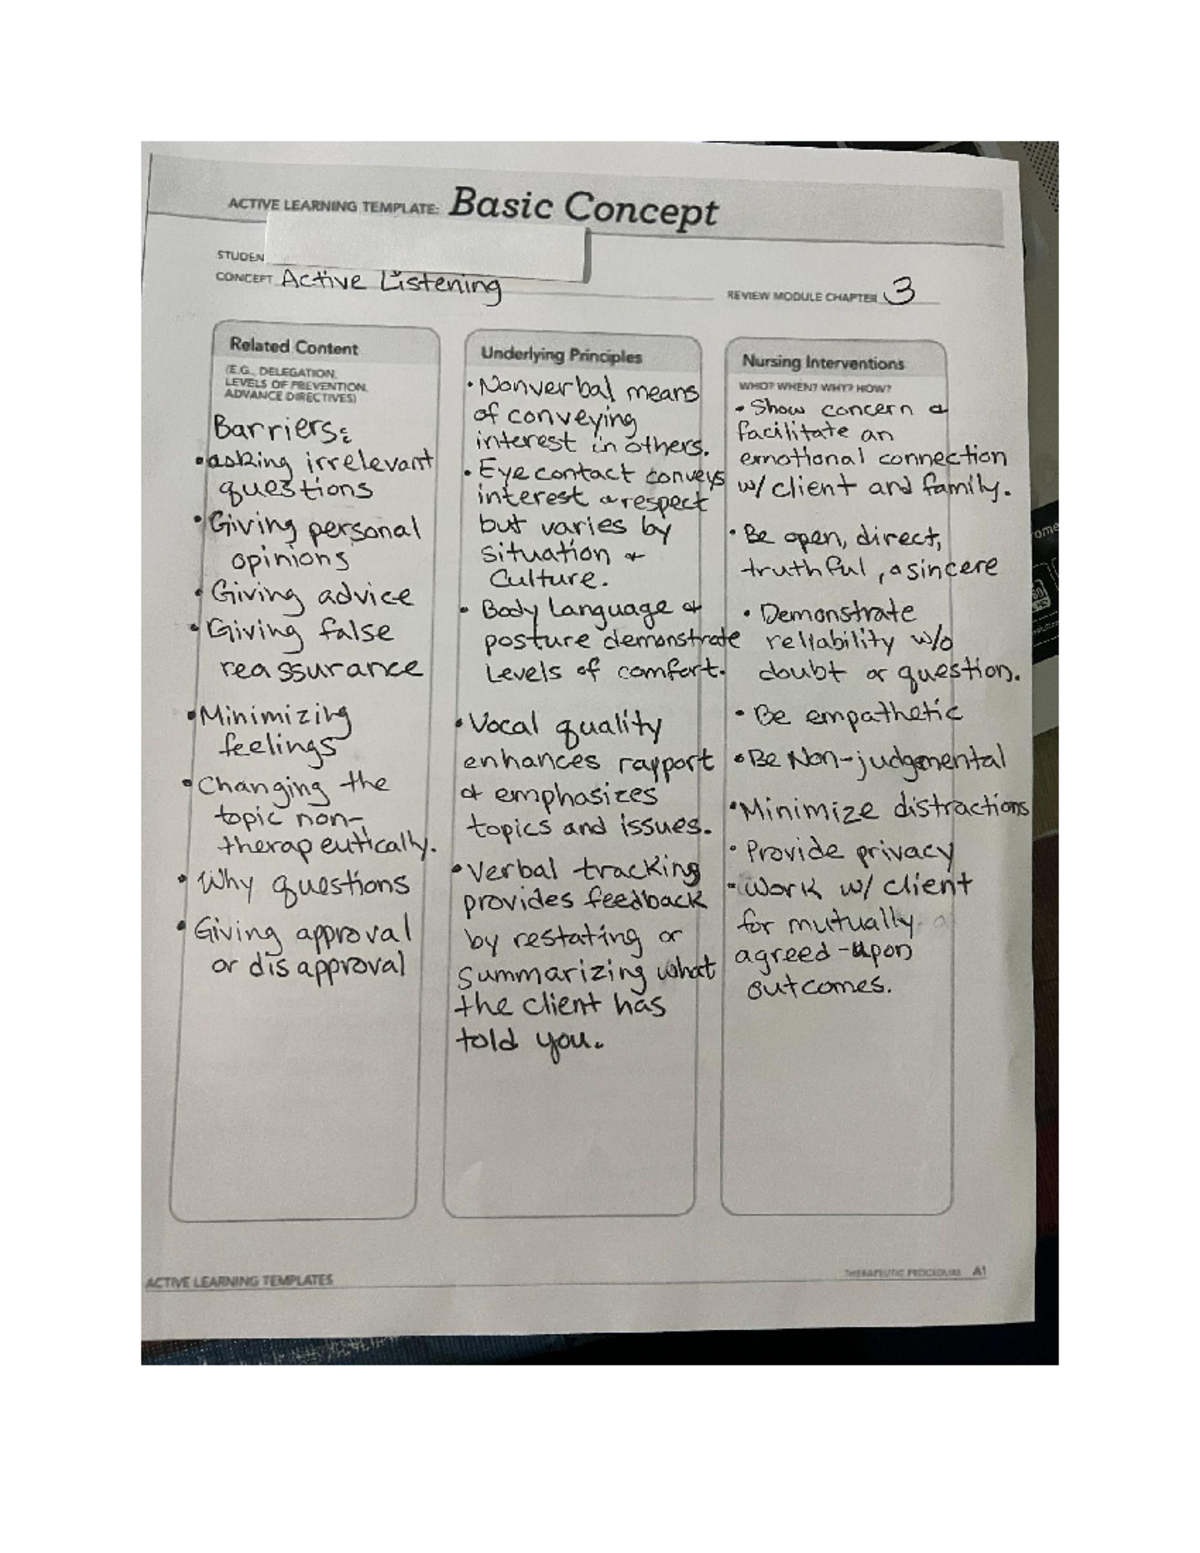 ACTIVE LEARNING TEMPLATE: Basic Concept
STUDEN
CONCEPT Active Listening
REVIEW MODULE CHAPTER 3
Related Content
(E.G., DELEGATION,
LEVELS OF PREVENTION,
ADVANCE DIRECTIVES)
Barriers:
• asking irrelevant
questions
• Giving personal
opinions
• Giving advice
• Giving false
reassurance
• Minimizing
feelings
• Changing the
topic non-
therapeutically.
• Why questions
• Giving approval
or disapproval
Underlying Principles
• Nonverbal means
of conveying
interest in others.
• Eye contact conveys
interest & respect
but varies by
situation &
Culture.
• Body language &
posture demonstrate
Levels of comfort.
• Vocal quality
enhances rapport
& emphasizes
topics and issues.
• Verbal tracking
provides feedback
by restating or
summarizing what
the client has
told you.
Nursing Interventions
WHO? WHEN? WHY? HOW?
• Show concern &
facilitate an
emotional connection
w/ client and family.
• Be open, direct,
truthful, & sincere
• Demonstrate
reliability w/o
doubt or question.
• Be empathetic
• Be Non-judgmental
• Minimize distractions
• Provide privacy
- Work w/ client
for mutually
agreed-upon
outcomes.
ACTIVE LEARNING TEMPLATES
THERAPEUTIC PROCEDURE A1